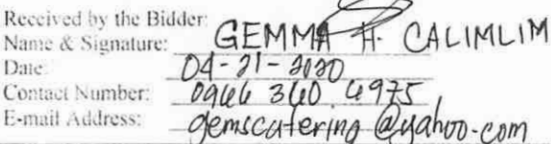 Received by the Bidder:
Name & Signature: GEMMA H. CALIMLIM
Date: 04-21-2020
Contact Number: 0966 360 4975
E-mail Address: gemscatering @yahoo.com